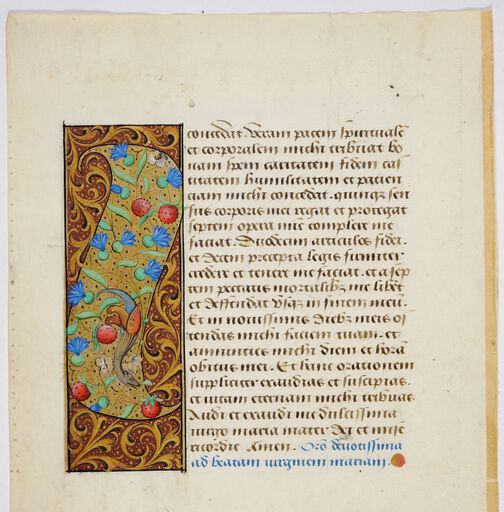 concedat. Veram pacem spiritualē
et corporalem michi tribuat bo
nam spem caritatem fidem cas
titatem humilitatem et pacien
ciam michi concedat. quinqȝ sen
sus corporis mei regat et protegat
septem opera mīe complere me
faciat. Duodecim articulos fidei.
et decem precepta legis firmiter
credere et tenere me faciat. et a sep
tem peccatis mortalibȝ me liberet
et deffendat vsqȝ in finem meū.
Et in nouissimis diebȝ meis os
tendas michi faciem tuam. et
annuncies michi diem et horā
obitus mei. Et hanc orationem
suppliciter exaudias et suscipias.
et vitam eternam michi tribuas
Audi et exaudi me dulcissima
virgo maria mater dei et mise
ricordie Amen. Orō deuotissima
ad beatam virginem mariam.